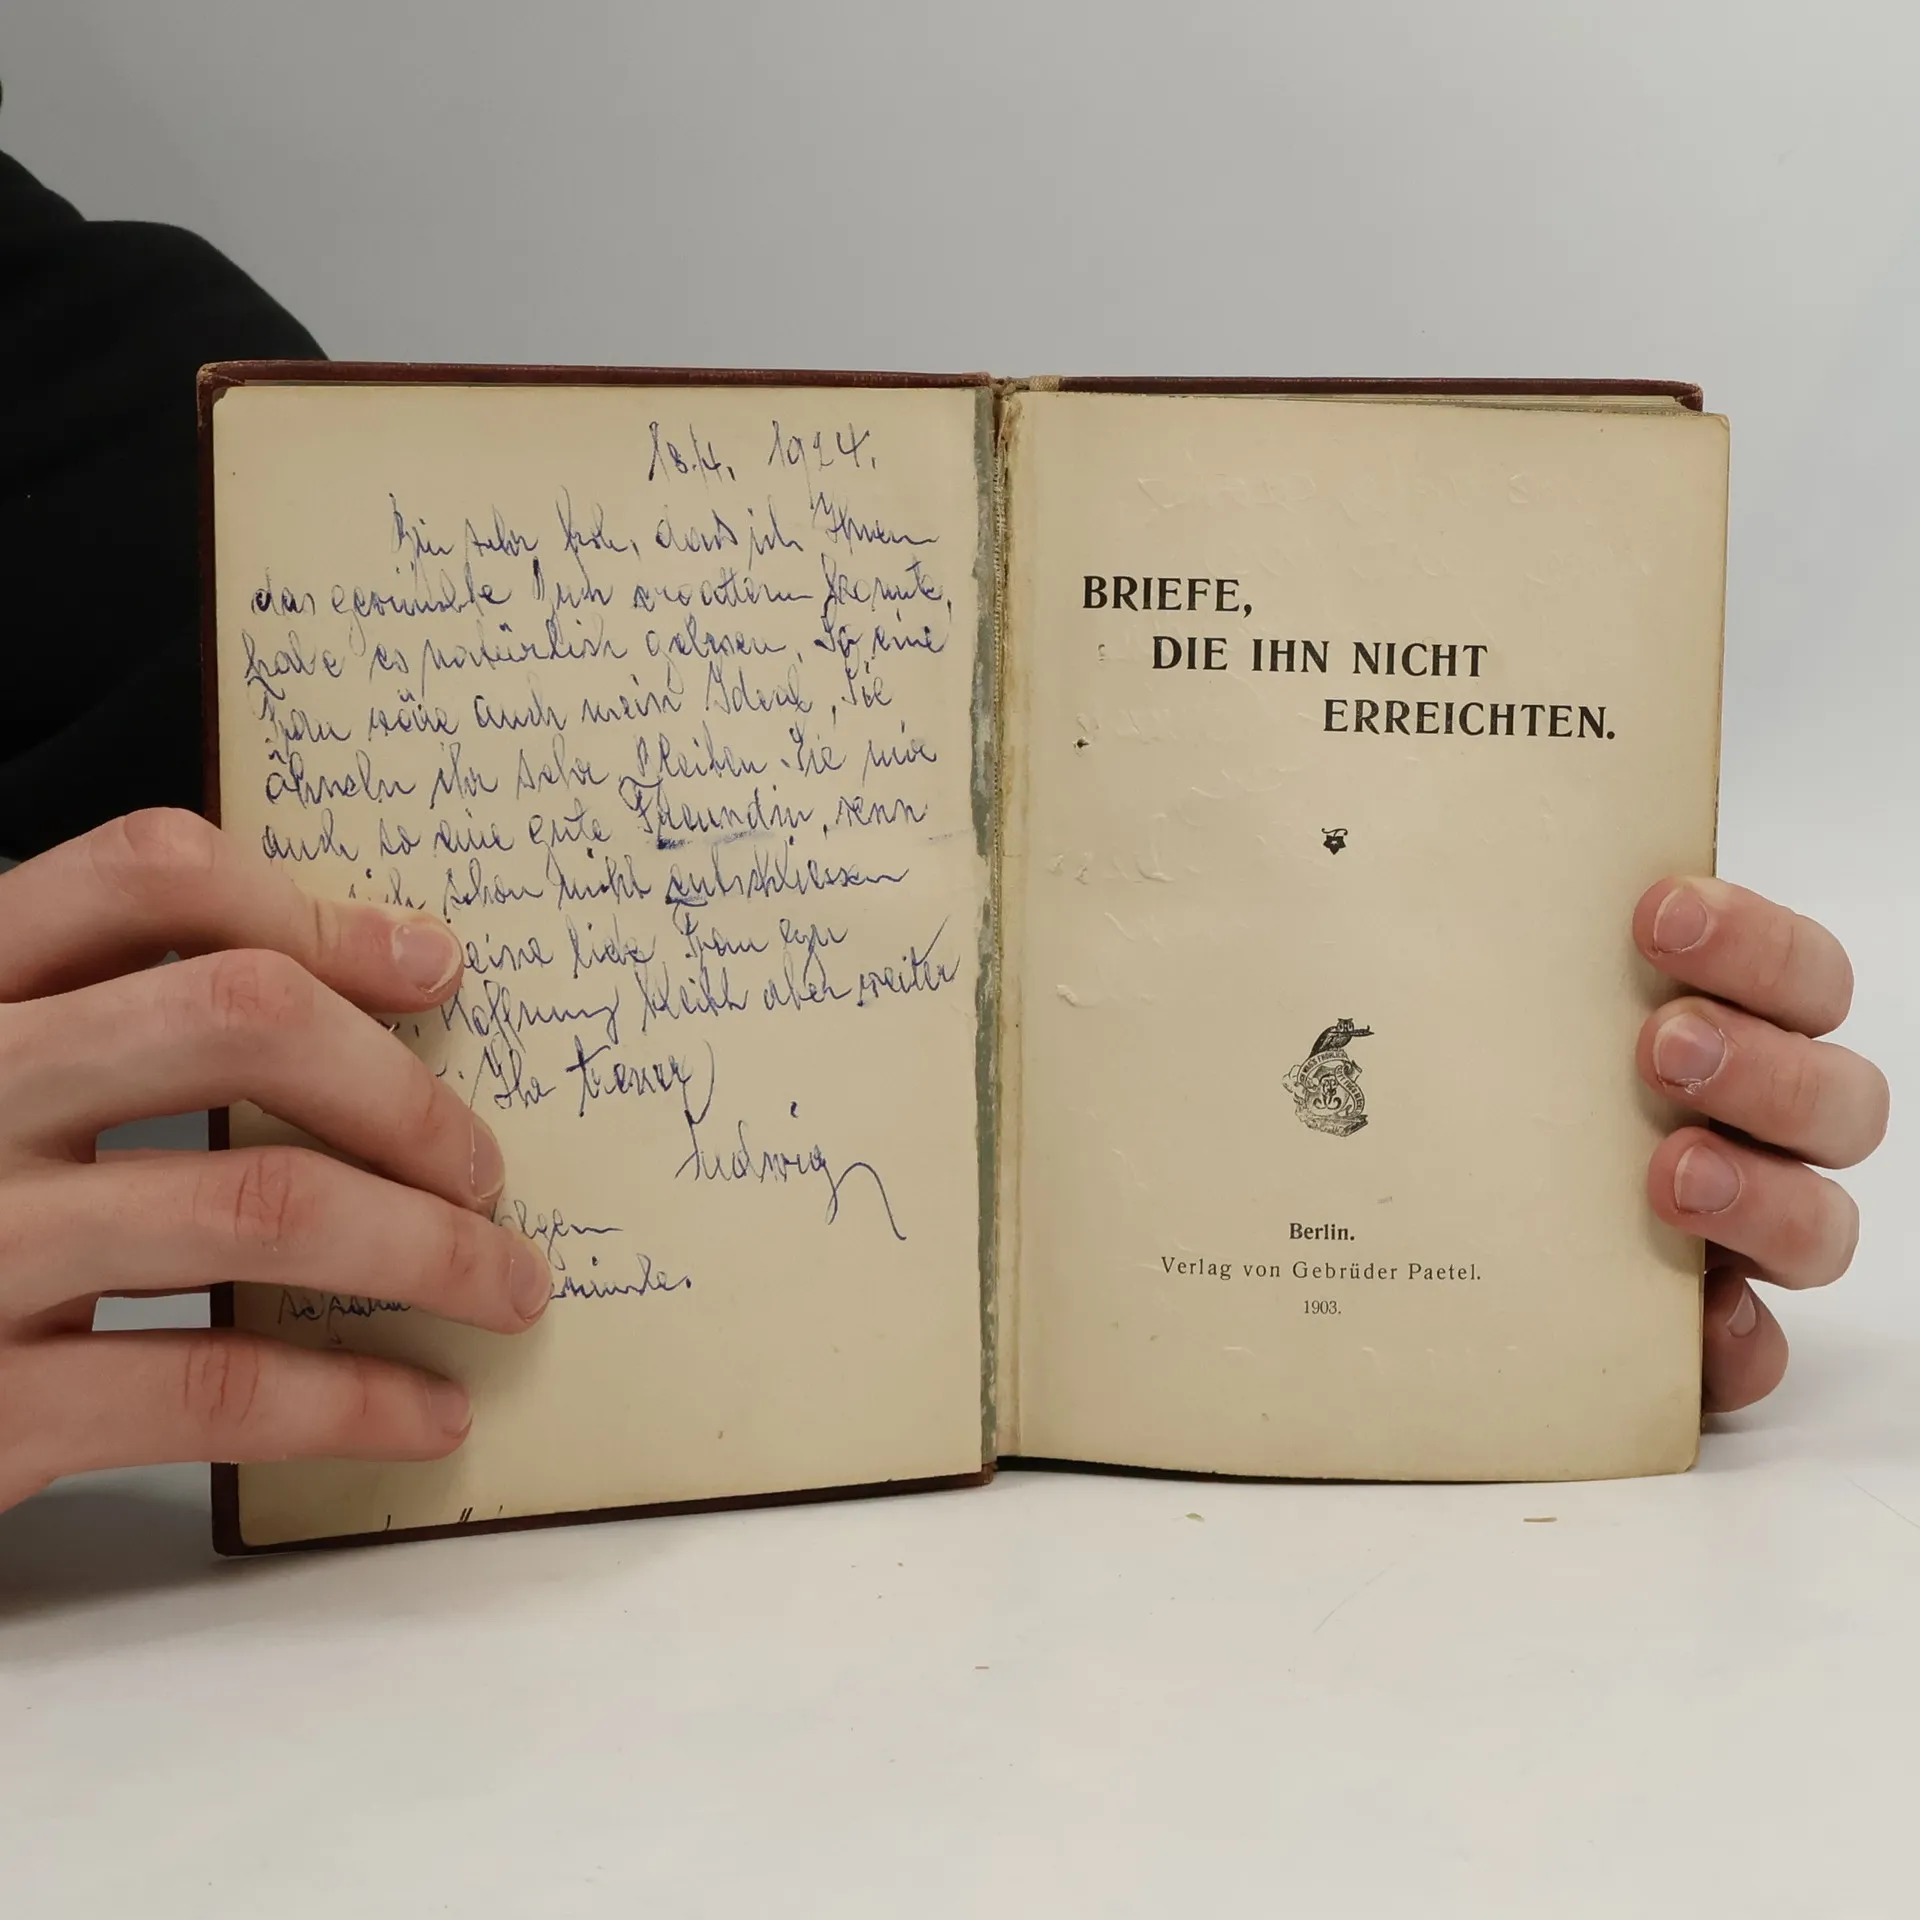 18./4. 1924.
Bin sehr froh, dass ich Ihnen
das gewünschte Buch erobern konnte,
habe es natürlich gelesen. So eine
Frau wäre auch mein Ideal, Sie
ähneln ihr sehr. Bleiben Sie mir
auch so eine gute Freundin, wenn
sich schon nicht entschliessen
meine liebe Frau
Hoffnung bleibt aber weiter
Ihr treuer
Ludwig
BRIEFE,
DIE IHN NICHT
ERREICHTEN.
Berlin.
Verlag von Gebrüder Paetel.
1903.